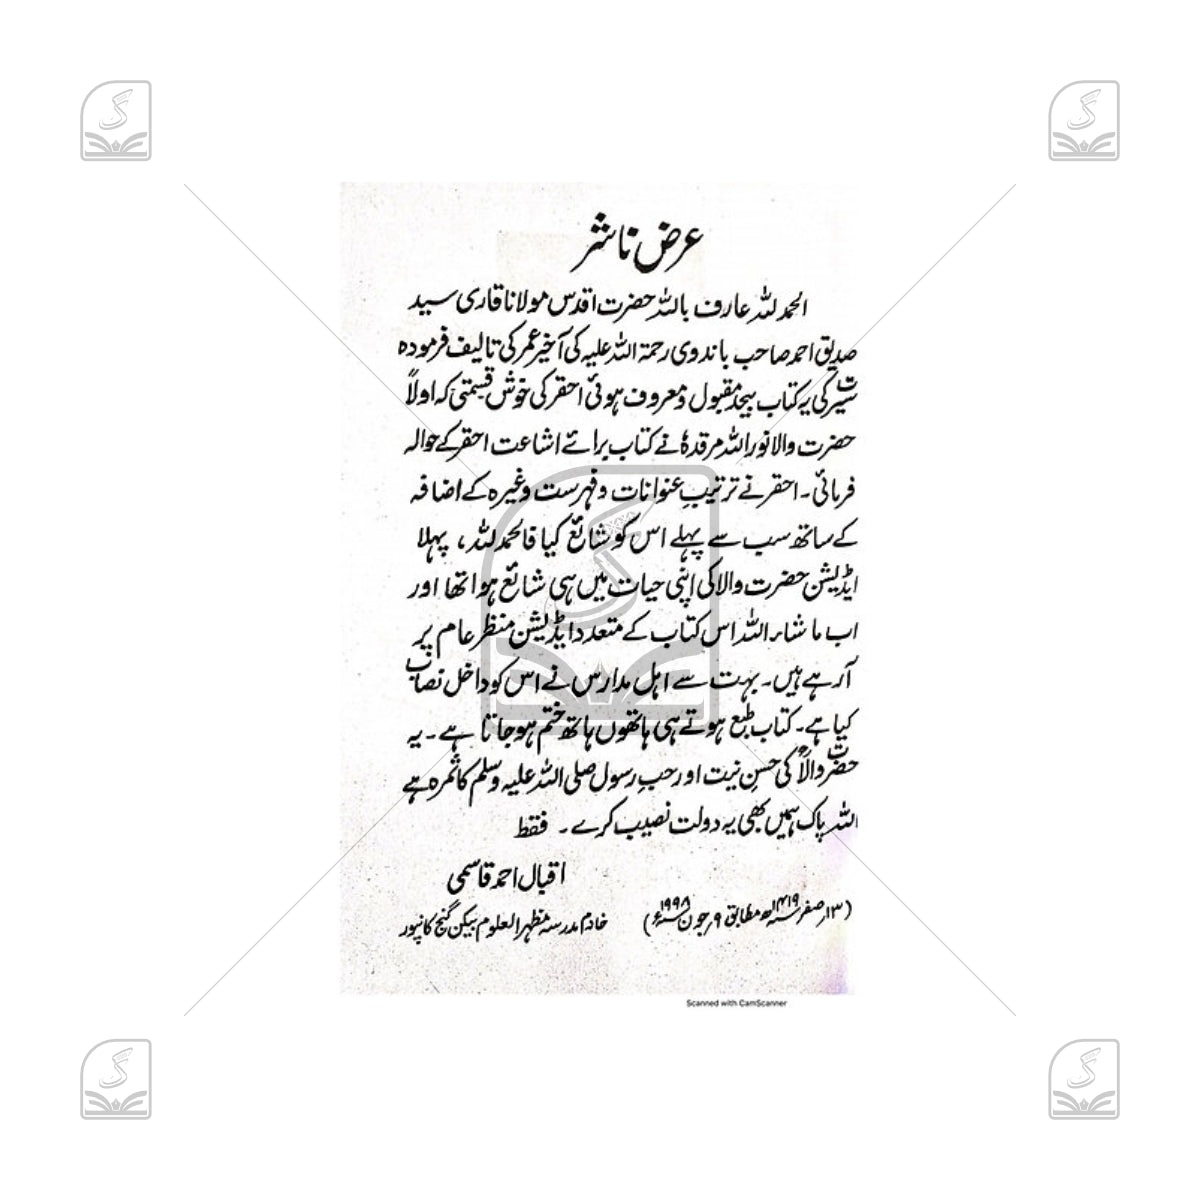 عرض ناشر
الحمد للہ عارف باللہ حضرت اقدس مولانا قاری سید
صدیق احمد صاحب باندوی رحمۃ اللہ علیہ کی آخیر عمر کی تالیف فرمودہ
سیرت کی یہ کتاب بیحد مقبول و معروف ہوئی احقر کی خوش قسمتی کہ اولاً
حضرت والا نور اللہ مرقدہٗ نے کتاب برائے اشاعت احقر کے حوالہ
فرمائی۔ احقر نے ترتیبِ عنوانات و فہرست وغیرہ کے اضافہ
کے ساتھ سب سے پہلے اس کو شائع کیا فالحمد للہ، پہلا
ایڈیشن حضرت والا کی اپنی حیات میں ہی شائع ہوا تھا اور
اب ماشاء اللہ اس کتاب کے متعدد ایڈیشن منظر عام پر
آرہے ہیں۔ بہت سے اہل مدارس نے اس کو داخل نصاب
کیا ہے۔ کتاب طبع ہوتے ہی ہاتھوں ہاتھ ختم ہوجاتا ہے۔ یہ
حضرت والاؒ کی حسنِ نیت اور حبِ رسول صلی اللہ علیہ وسلم کا ثمرہ ہے
اللہ پاک ہمیں بھی یہ دولت نصیب کرے۔ فقط
اقبال احمد قاسمی
(۱۳؍ صفر ۱۴۱۹ھ مطابق ۹؍ جون ۱۹۹۸ء) خادم مدرسہ مظہر العلوم بیکن گنج کانپور
Scanned with CamScanner